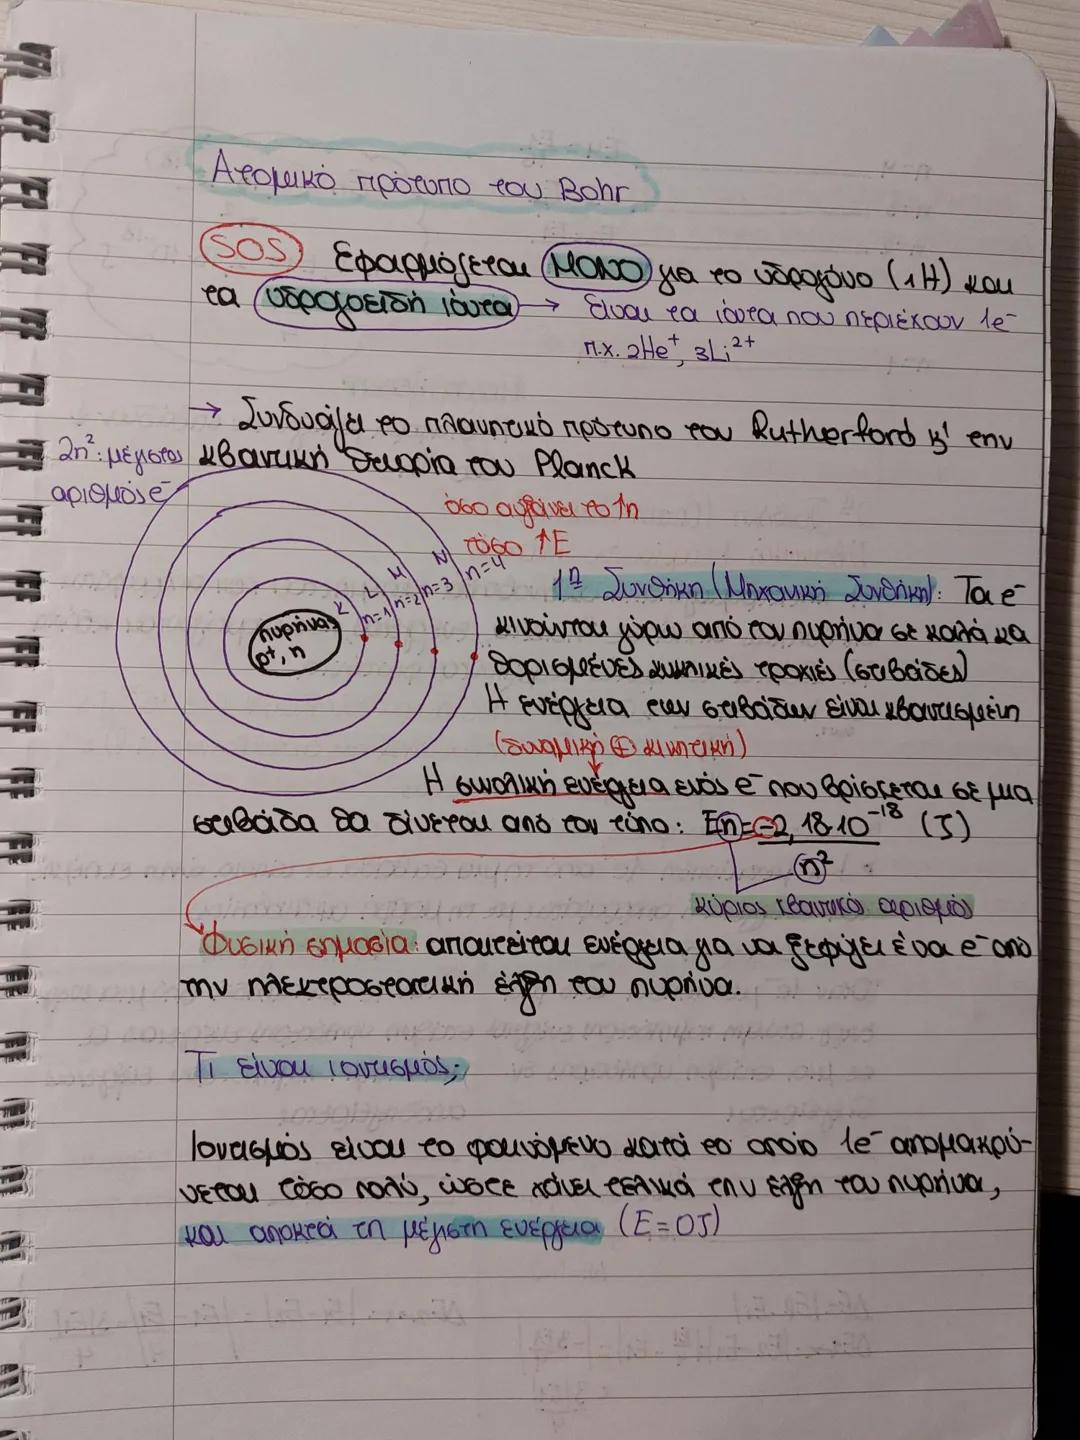 Ατομικό πρότυπο του Bohr
SOS Εφαρμόζεται ΜΟΝΟ για το υδρογόνο (₁H) και
τα υδρογοειδή ιόντα → Είναι τα ιόντα που περιέχουν 1e⁻
π.χ. ₂He⁺, ₃Li²⁺
→ Συνδυάζει το πλανητικό πρότυπο του Rutherford κ' την
κβαντική θεωρία του Planck
2n²: μέγιστος
αριθμός e⁻
όσο αυξάνει το ↑n
τόσο ↑E
K L M N
n=1 n=2 n=3 n=4
πυρήνας
p⁺, n
1η Συνθήκη (Μηχανική Συνθήκη): Τα e⁻
κινούνται γύρω από τον πυρήνα σε καλά κα
θορισμένες κυκλικές τροχιές (στιβάδες)
Η ενέργεια των στιβάδων είναι κβαντισμένη
(δυναμική ⊕ κινητική)
Η συνολική ενέργεια ενός e⁻ που βρίσκεται σε μια
στιβάδα θα δίνεται από τον τύπο: En = -2,18·10⁻¹⁸ (J)
n²
κύριος κβαντικό αριθμό
Φυσική σημασία: απαιτείται ενέργεια για να ξεφύγει ένα e⁻ από
την ηλεκτροστατική έλξη του πυρήνα.
Τι είναι ιοντισμός;
Ιοντισμός είναι το φαινόμενο κατά το οποίο 1e⁻ απομακρύ-
νεται τόσο πολύ, ώστε χάνει τελικά την έλξη του πυρήνα,
και αποκτά τη μέγιστη ενέργεια (E=0J)